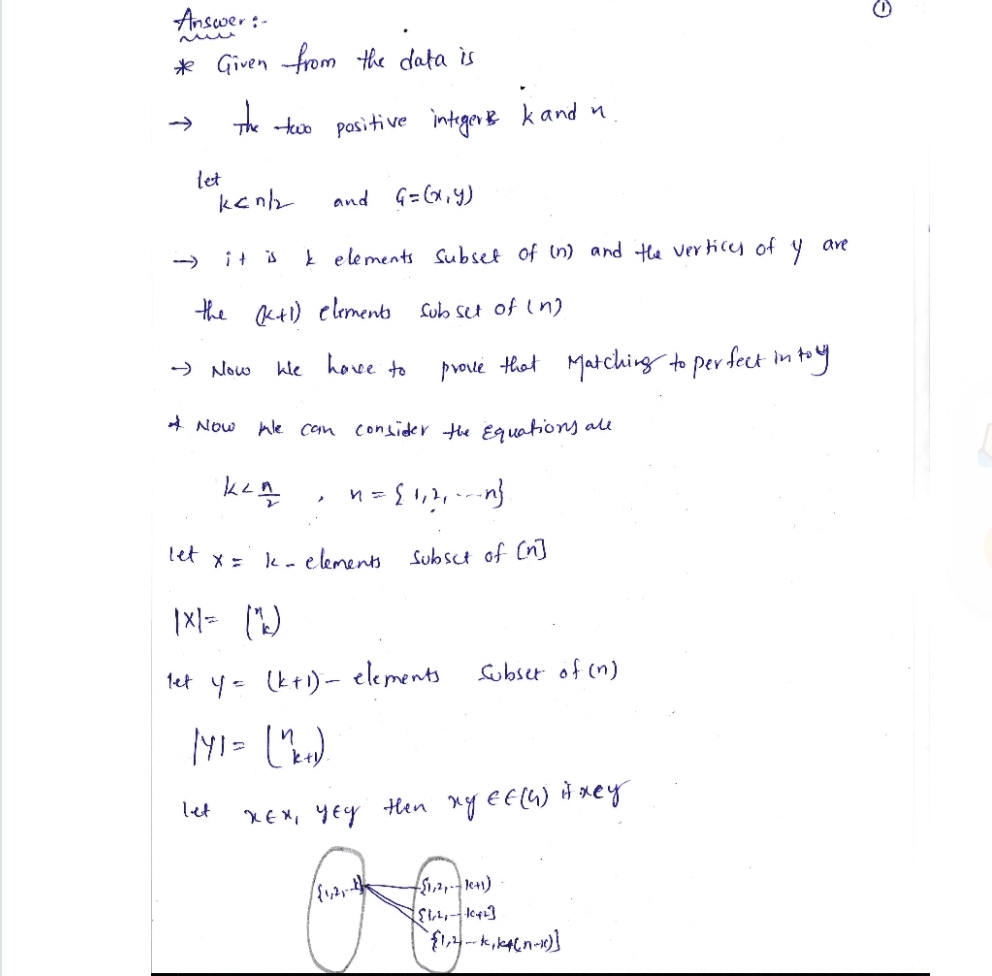 ①
Answer :-
* Given from the data is
→ The two positive integers k and n.
let
k<n/2 and G=(x,y)
→ it is k elements subset of (n) and the vertices of y are
the (k+1) elements subset of (n)
→ Now We have to prove that Matching to perfect in to y
* Now We can consider the Equations are
k<n/2 , n = {1,2, ---n}
let x = k - elements subset of [n]
|X|= (n k)
let y = (k+1) - elements Subset of (n)
|Y|= (n k+1)
let x∈x, y∈y then xy ∈E(G) if x∈y
{1,2,-k} {1,2,--k+1)
{1,2,--k+2}
{1,2--k,k+(n-k)}